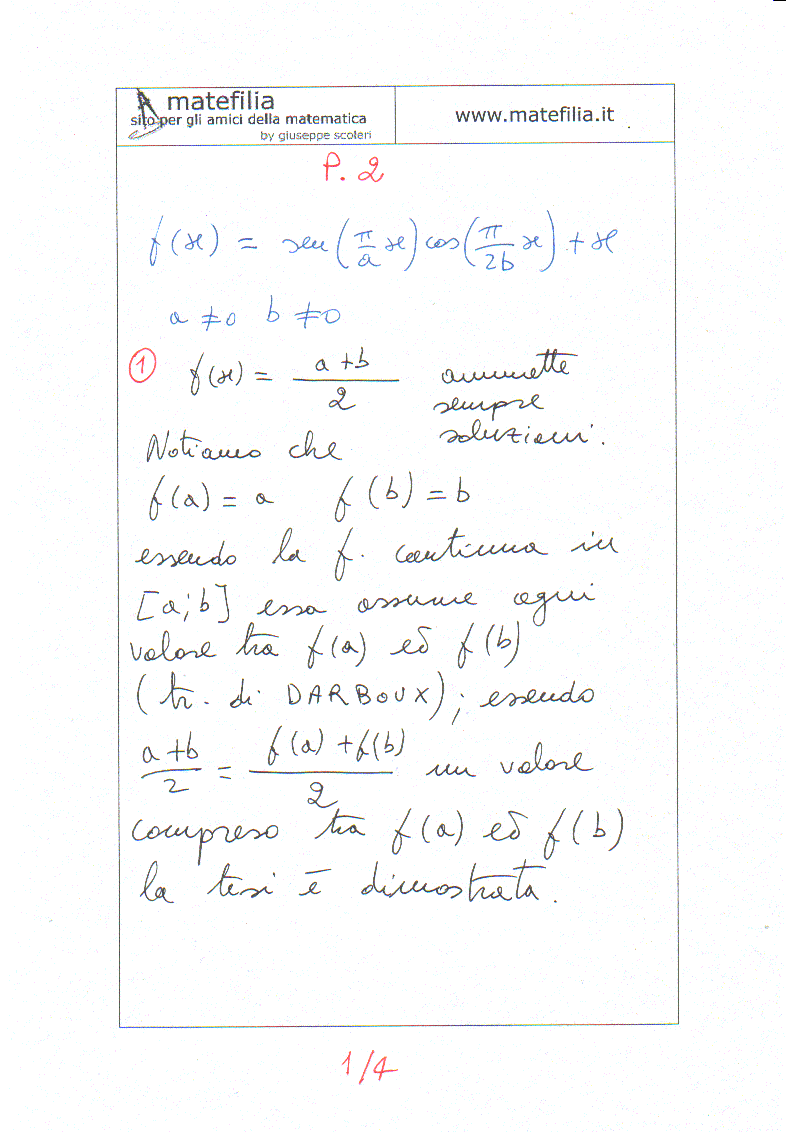 matefilia
sito per gli amici della matematica
by giuseppe scoleri
www.matefilia.it
P. 2
f(x) = sen(π/a x) cos(π/2b x) + x
a ≠ 0 b ≠ 0
① f(x) = (a+b)/2 ammette
sempre
soluzioni.
Notiamo che
f(a) = a f(b) = b
essendo la f. continua in
[a;b] essa assume ogni
valore tra f(a) ed f(b)
(tr. di DARBOUX); essendo
(a+b)/2 = (f(a)+f(b))/2 un valore
compreso tra f(a) ed f(b)
la tesi è dimostrata.
1/4